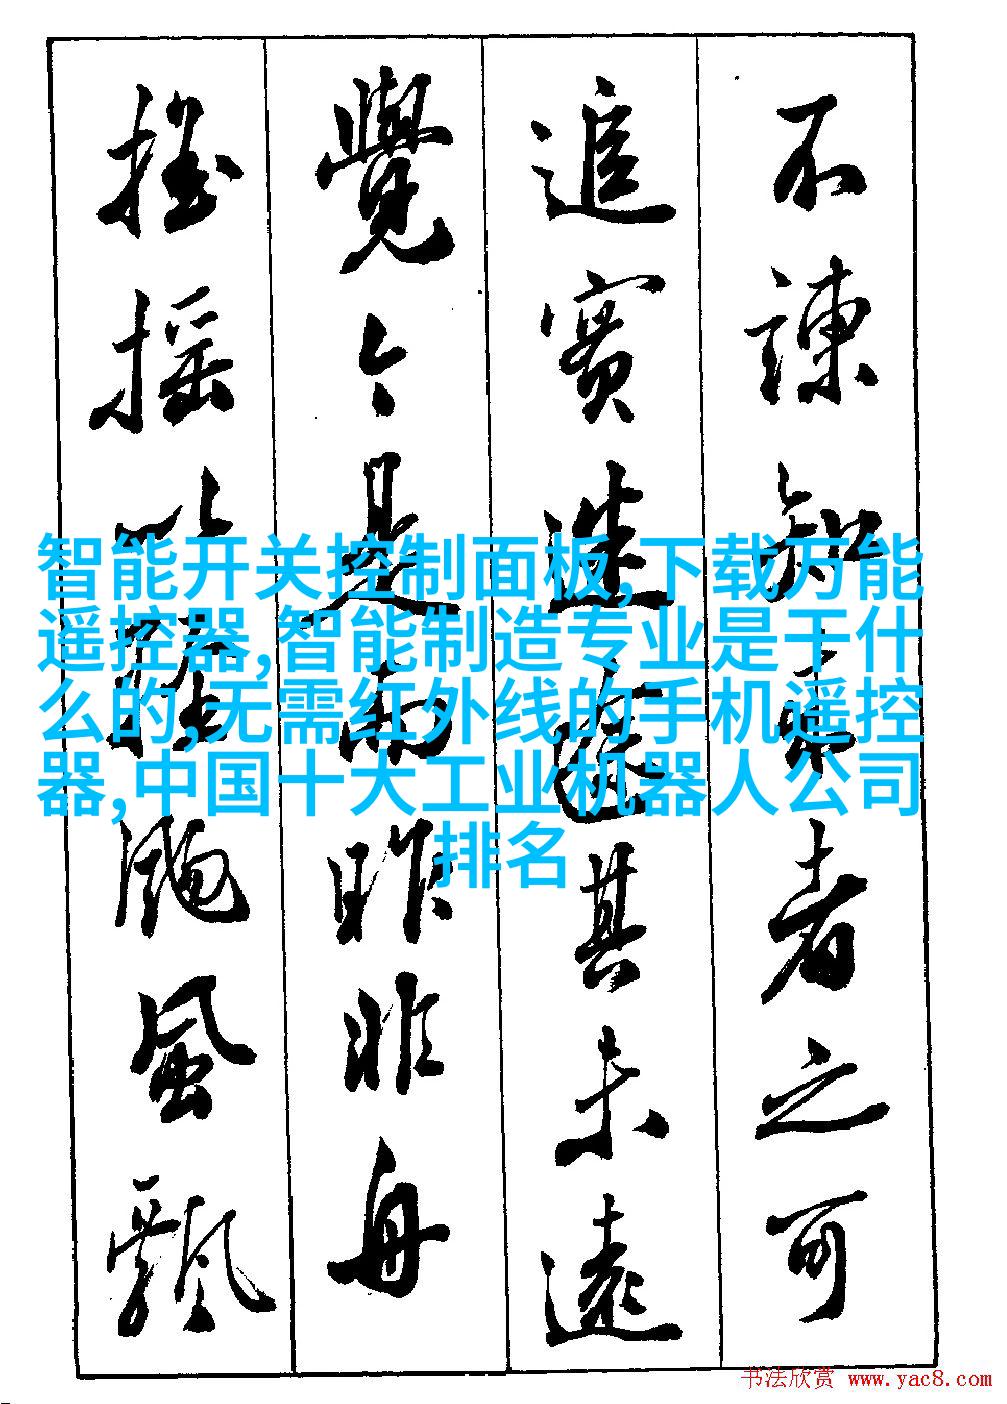 不諫知来者之可
追實迷途其未遠
覺今是而昨非舟
搖摇以輕颺風飄
智能开关控制面板,下载万能
遥控器,智能制造专业是干什
么的,无需红外线的手机遥控
器,中国十大工业机器人公司
排名
书法欣赏 www.yac8.com